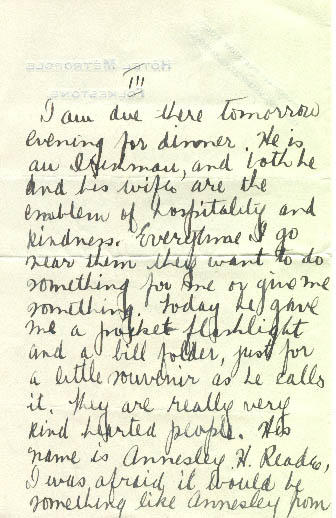 HOTEL METROPOLE
FOLKESTONE
III
I am due there tomorrow
evening for dinner. He is
an Irishman, and both he
and his wife are the
emblem of hospitality and
kindness. Everytime I go
near them they want to do
something for me or give me
something. Today he gave
me a pocket flashlight
and a bill folder, just for
a little souvenir as he calls
it. They are really very
kind hearted people. His
name is Annesley H.
I was afraid it would be
something like Annesley from